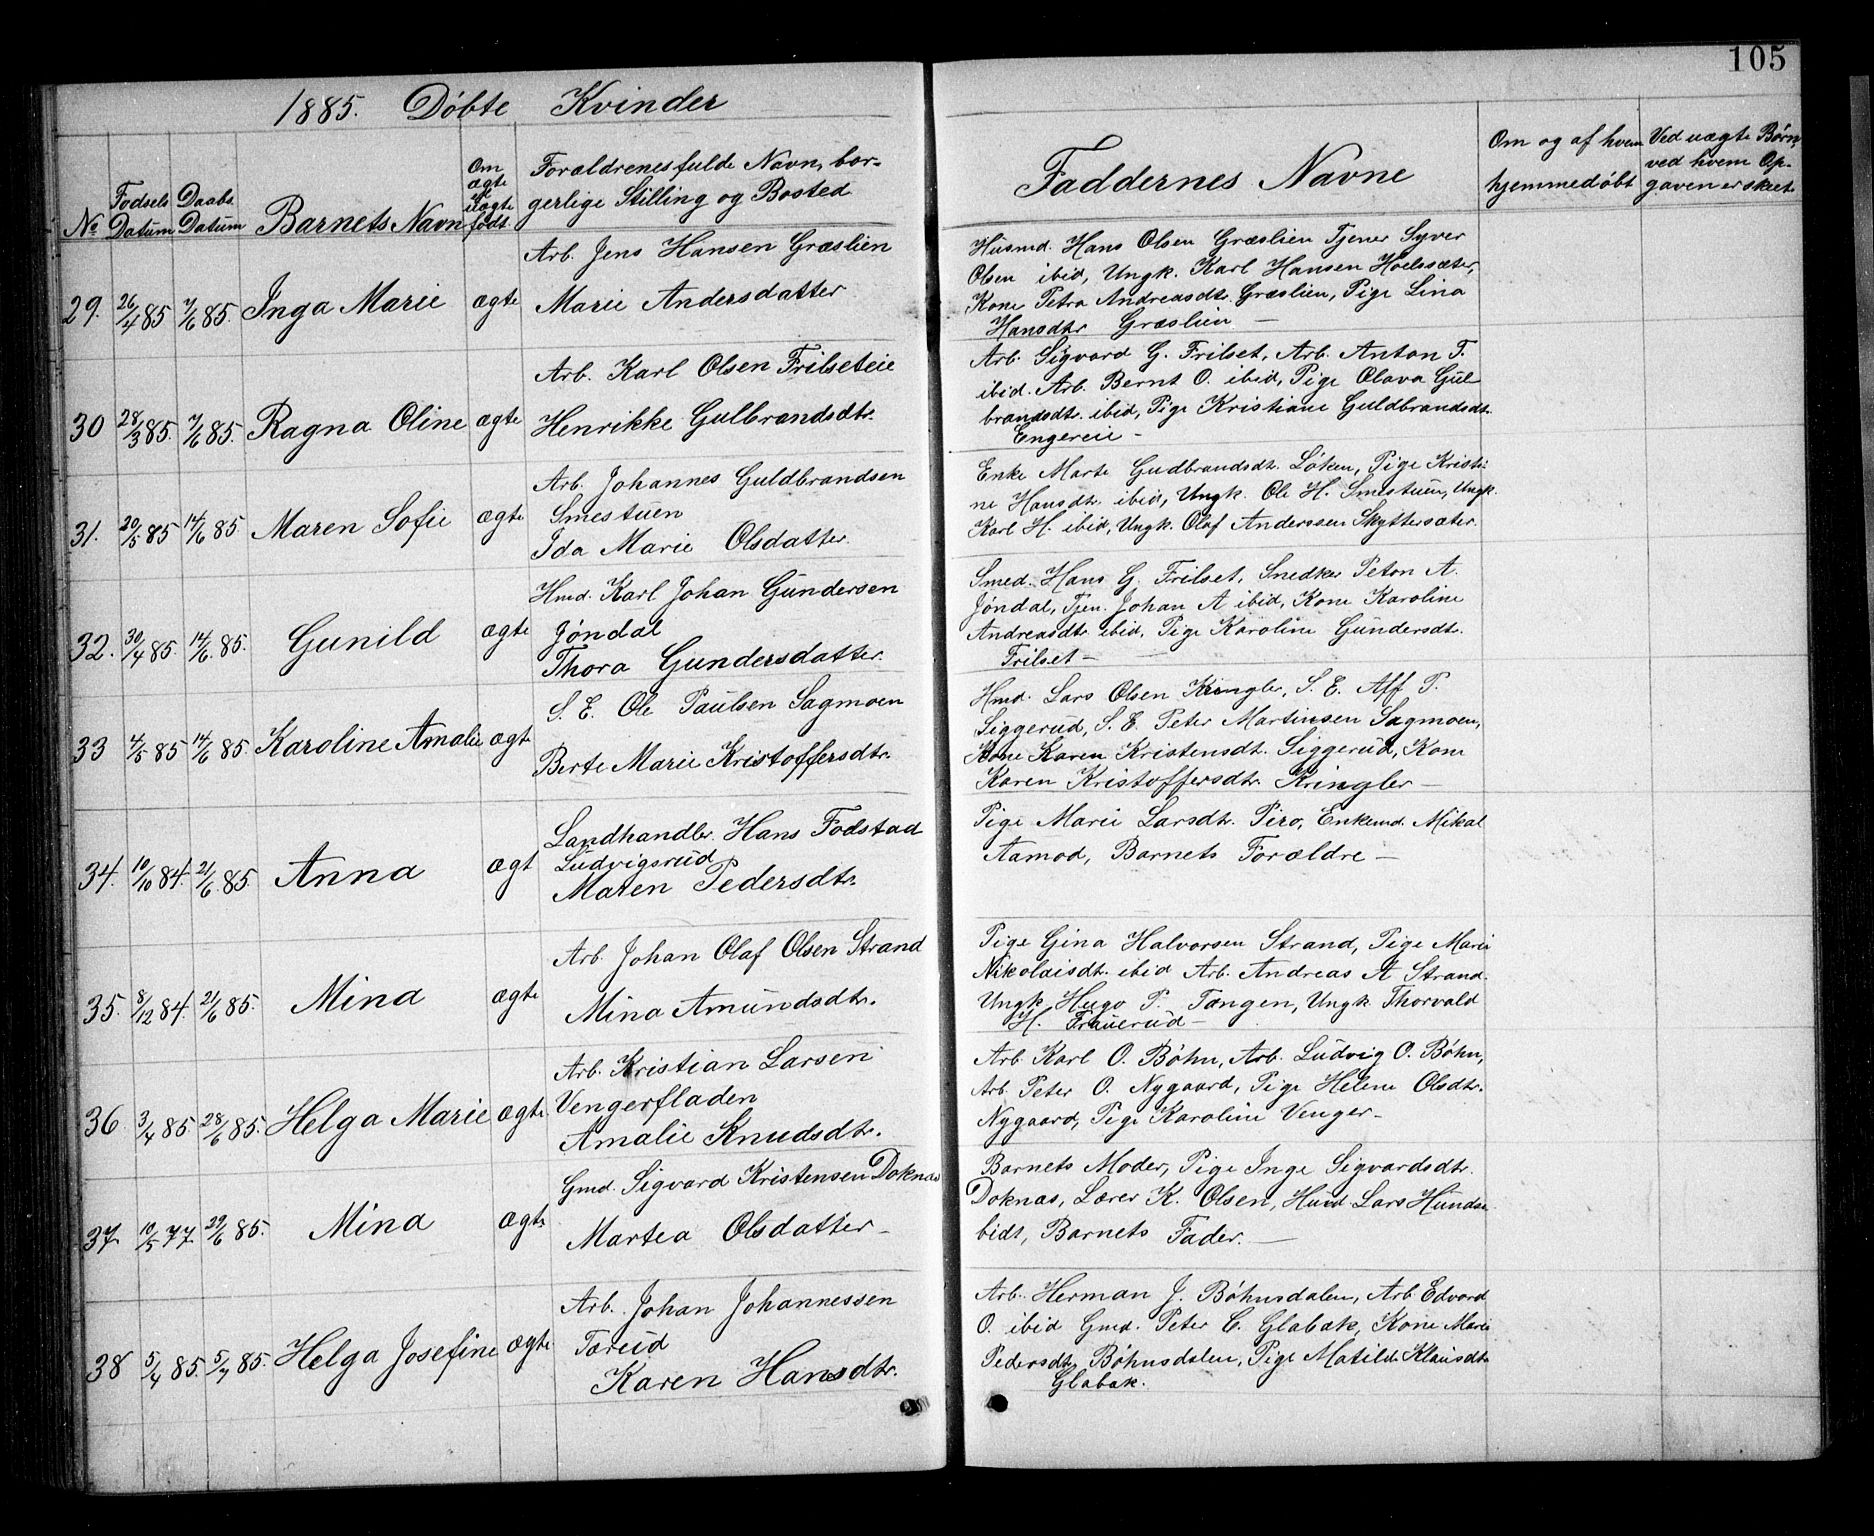 105
1885. Döbte Kvinder
No
Fødsels Datum
Daabs Datum
Barnets Navn
Om ægte el. uægte født
Forældrenes fulde Navn, bor-
gerlige Stilling og Bosted
Faddernes Navne
Om og af hvem
hjemmedøbt
Ved uægte Børn,
ved hvem Op-
gaven er skeet
29. 26/4 85 7/6 85. Inga Marie ægte
Arb. Jens Hansen Græslien
Marie Andersdatter
Husmd. Hans Olsen Græslien Tjener Syver
Olsen ibid, Ungk. Karl Hansen Hoelssæter,
Kone Petra Andreasdtr. Græslien, Pige Lina
Hansdtr Græslien —
30 28/3 85. 7/6 85. Ragna Oline ægte
Arb. Karl Olsen Frilseteie
Henrikke Gulbrandsdtr.
Arb. Sigvard G. Frilset, Arb. Anton T.
ibid. Arb. Bernt O. ibid, Pige Olava Gul
brandsdtr. ibid, Pige Kristiane Guldbrandsdt.
Engereie —
31. 20/5 85 14/6 85 Maren Sofie ægte
Arb. Johannes Guldbrandsen
Smestuen
Ida Marie Olsdatter.
Enke Marte Gudbrandsdt. Löken, Pige Kristi-
ne Hansdtr. ibid, Ungk. Ole H. Smestuen, Ungk.
Karl H. ibid, Ungk. Olaf Anderssen Skyttersæter.
32. 30/4 85. 14/6. 85. Gunild ægte
Hmd. Karl Johan Gundersen
Jöndal
Thora Gundersdatter.
Smed. Hans G. Frilset, Snedker Peton A.
Jöndal, Tjen. Johan A ibid, Kone Karoline
Andreasdtr. ibid, Pige Karoline Gundersdtr.
Frilset —
33 4/5 85 14/6 85. Karoline Amalie ægt
S. E. Ole Paulsen Sagmoen
Berte Marie Kristoffersdtr.
Hmd. Lars Olsen Kringler, S. E. Alf P.
Siggerud, S. E. Peter Martinsen Sagmoen,
Kone Karen Kristensdt. Siggerud, Kone
Karen Kristoffersdtr. Kringler —
34. 10/10 84. 21/6 85. Anna ægt
Landhandler Hans Fodstad
Ludvigsrud
Maren Pedersdtr.
Pige Marie Larsdtr. Piro, Enkemd. Mikal
Aamod, Barnets Forældre —
35. 8/12 84. 21/6 85. Mina ægte
Arb. Johan Olaf Olsen Strand
Mina Amundsdtr.
Pige Gina Halvorsen Strand, Pige Marie
Nikolaisdt. ibid Arb. Andreas A Strand.
Ungk. Hugo P. Tangen, Ungk Thorvald
H. Frauerud —
36 3/4 85 28/6 85. Helga Marie ægte.
Arb. Kristian Larsen
Vengerfladen
Amalie Knudsdtr.
Arb Karl O. Böhn, Arb. Ludvig O. Böhn,
Arb. Peter O. Nygaard, Pige Helene Olsdtr.
Nygaard, Pige Karoline Venger —
37. 10/5 77. 29/6 85. Mina ægte
Gmd. Sigvard Kristensen Doknæs
Martea Olsdatter —
Barnets Moder, Pige Inge Sigvardsdtr.
Doknæs, Lærer K. Olsen, Husmd Lars Hundse
bidt, Barnets Fader. —
38 5/4 85. 5/7 85. Helga Josefine ægte
Arb. Johan Johannessen
Toreid
Karen Hansdtr.
Arb. Herman J. Böhnsdalen, Arb. Edvard
O. ibid Gmd. Peter C. Glabak, Kone Marie
Pedersdtr. Böhnsdalen, Pige Matilde Klausdtr
Glabak.